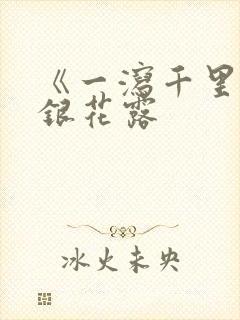 《一泻千里
银花露
冰火未央